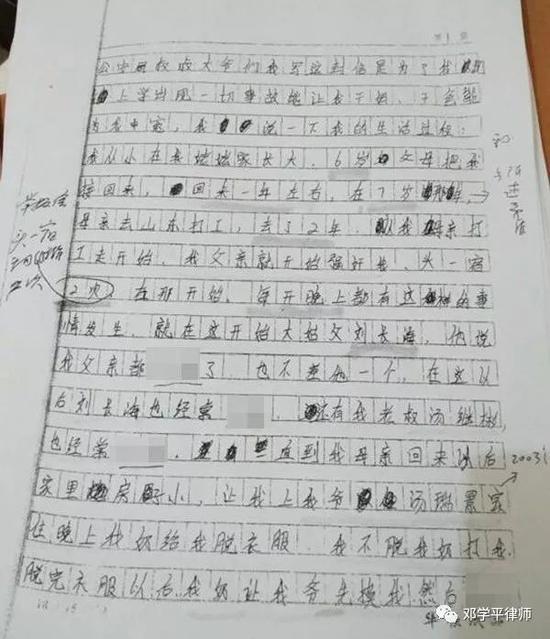 第1页
公安局叔叔大爷们我写这封信是为了我
上学当用一切事故能让我干妈、干爸能
为我申冤，我说一下我的生活过程：
我从小在我姥姥家长大，6岁父母把我
接回来，回来一年左右，在7岁那年，
母亲去山东打工，去了2年，从我母亲打
工走开始，我父亲就开始强奸我，头一宿
2次，在那开始，每天晚上都有这样的事
情发生，就在这开始大姑父刘长海，他说
我父亲都 了，也不差他一个，在这以
后刘长海也经常 ，还有我老叔汤继彬，
也经常 ，一直到我母亲回来以后
家里房子小，让我上我爷汤瑞景家
住晚上我奶给我脱衣服，我不脱我奶打我，
脱完衣服以后，我奶让我爷先 我，然后
2003
头一宿
邓学平律师